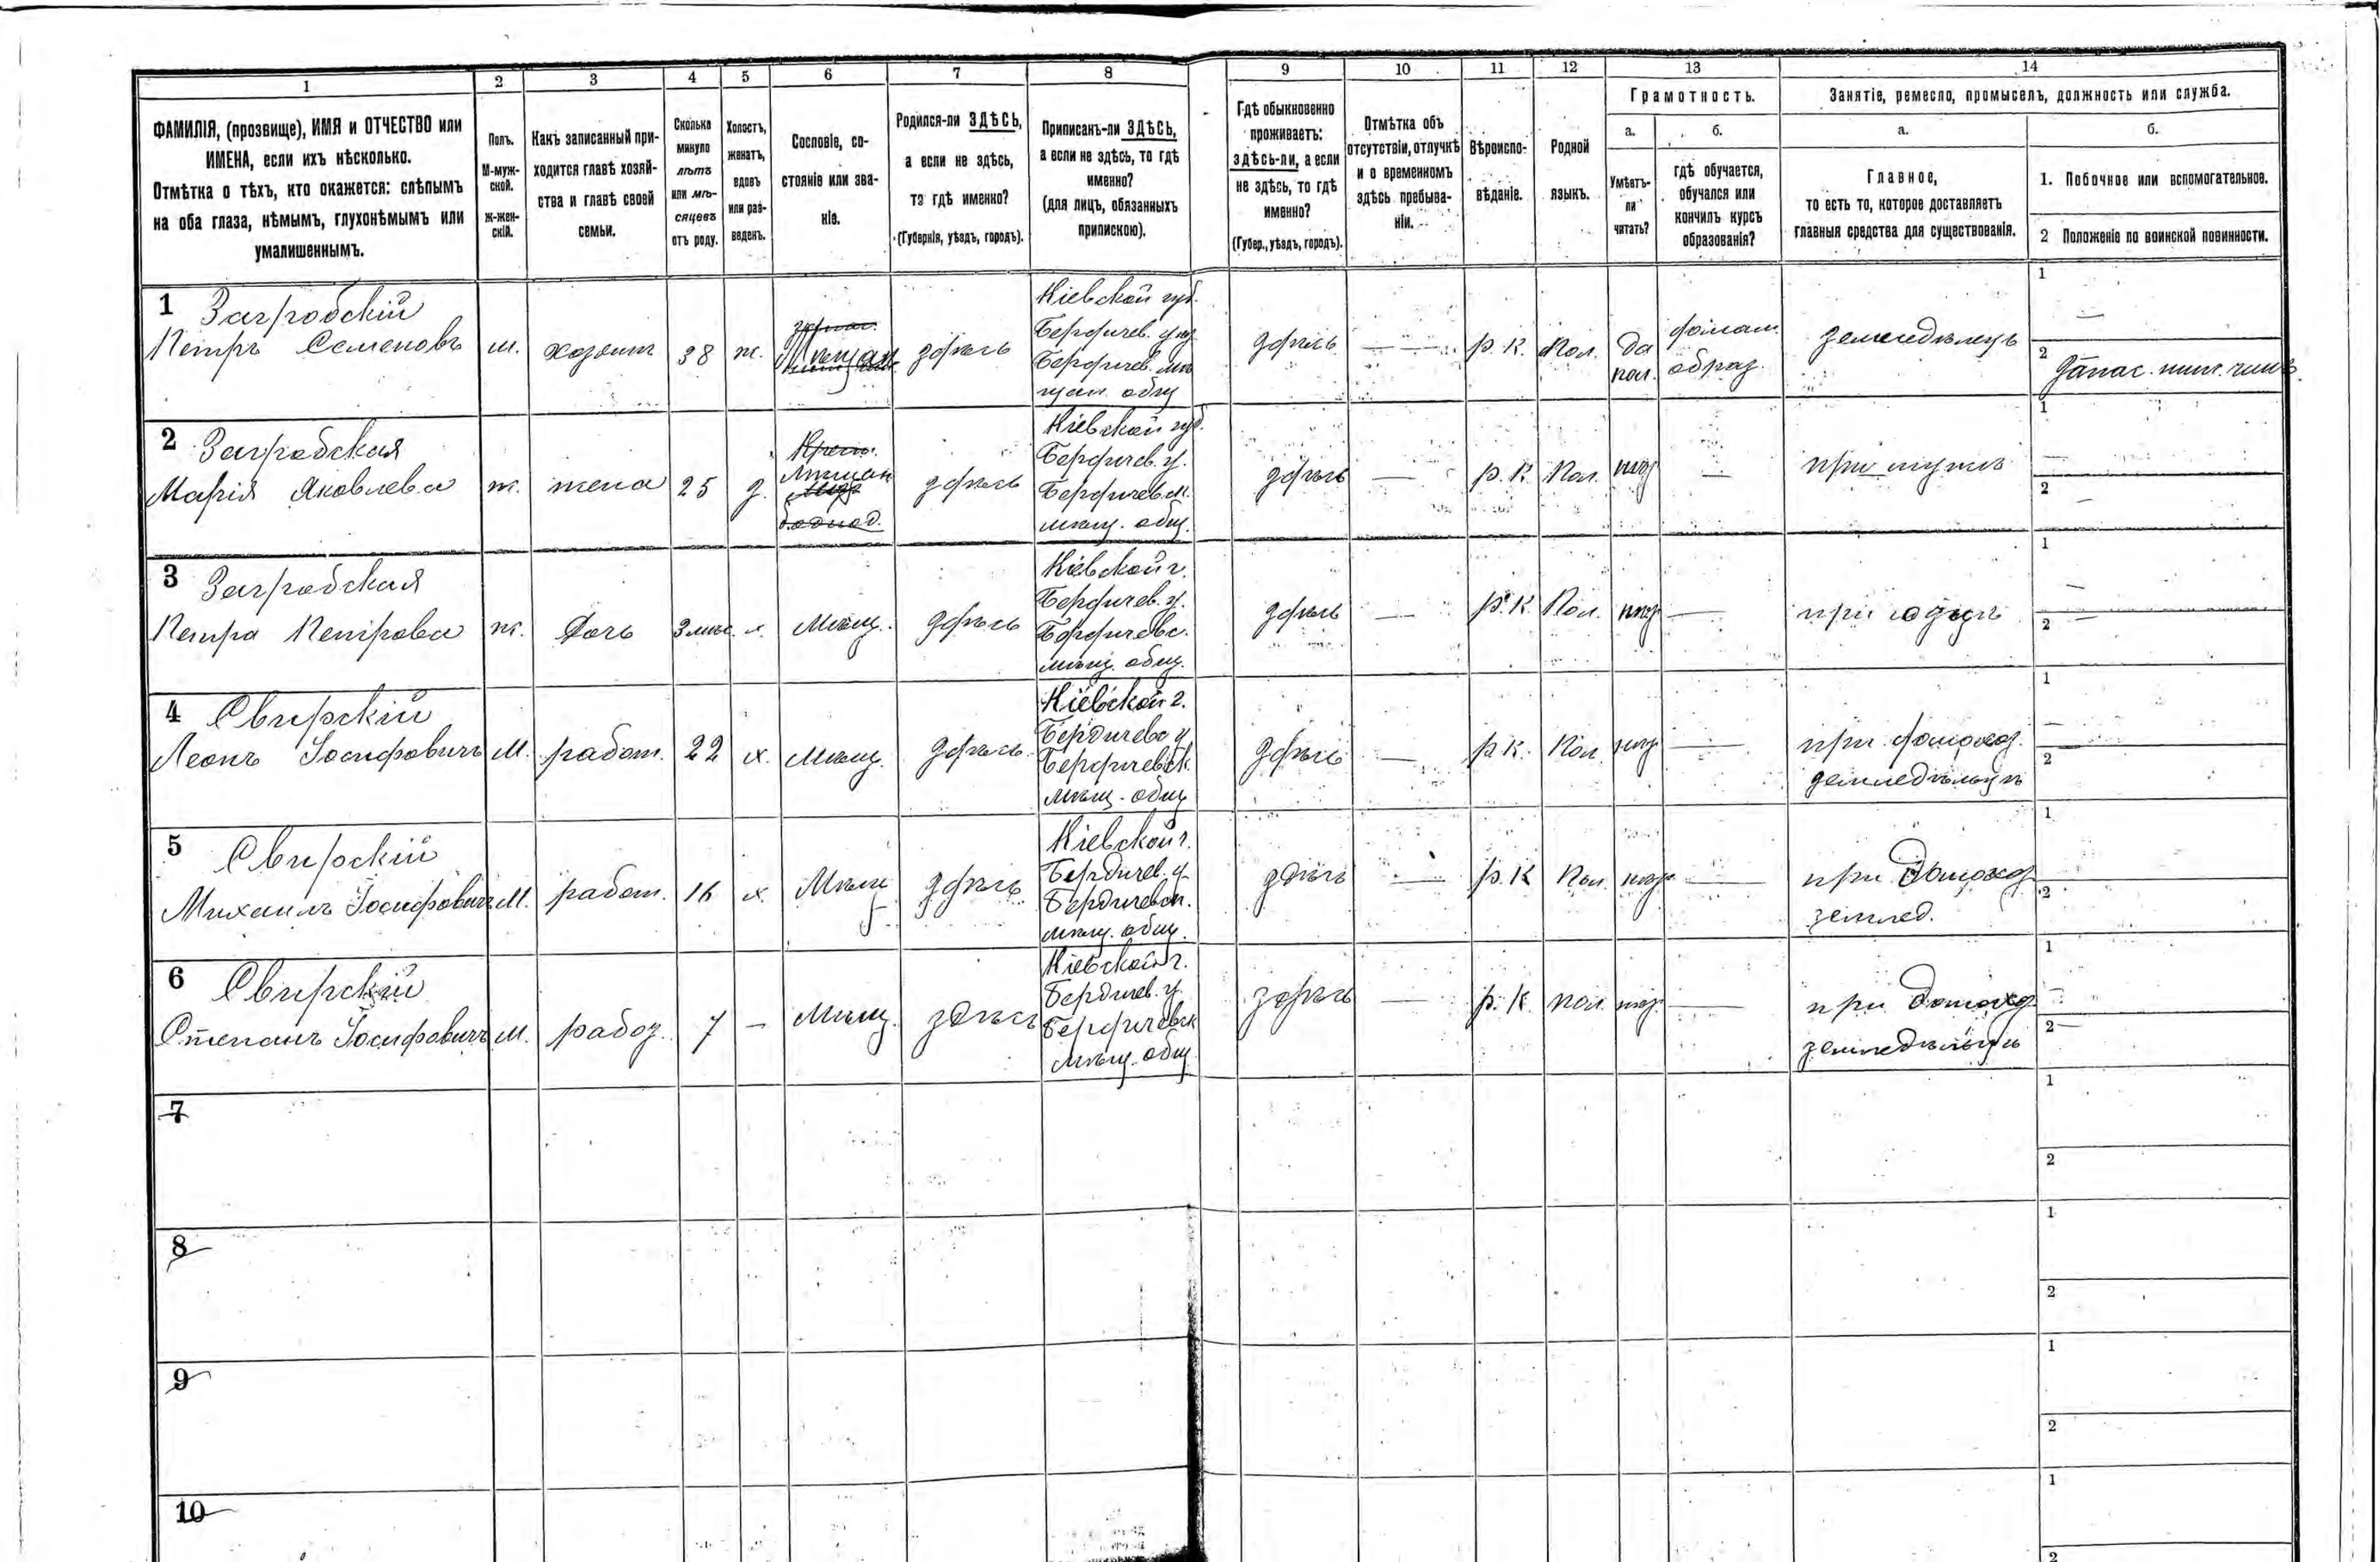 1 2 3 4 5 6 7 8 9 10 11 12 13 14
ФАМИЛІЯ, (прозвище), ИМЯ и ОТЧЕСТВО или
ИМЕНА, если ихъ нѣсколько.
Отмѣтка о тѣхъ, кто окажется: слѣпымъ
на оба глаза, нѣмымъ, глухонѣмымъ или
умалишеннымъ.
Полъ.
М-муж-
ской.
ж-жен-
скій.
Какъ записанный при-
ходится главѣ хозяй-
ства и главѣ своей
семьи.
Сколько
минуло
лѣтъ
или мѣ-
сяцевъ
отъ роду.
Холостъ,
женатъ,
вдовъ
или раз-
веденъ.
Сословіе, со-
стояніе или зва-
ніе.
Родился-ли ЗДѢСЬ,
а если не здѣсь,
то гдѣ именно?
(Губернія, уѣздъ, городъ).
Приписанъ-ли ЗДѢСЬ,
а если не здѣсь, то гдѣ
именно?
(для лицъ, обязанныхъ
припискою).
Гдѣ обыкновенно
проживаетъ:
здѣсь-ли, а если
не здѣсь, то гдѣ
именно?
(Губер., уѣздъ, городъ).
Отмѣтка объ
отсутствіи, отлучкѣ
и о временномъ
здѣсь пребыва-
ніи.
Вѣроиспо-
вѣданіе.
Родной
языкъ.
Грамотность.
а.
Умѣетъ-
ли
читать?
б.
гдѣ обучается,
обучался или
кончилъ курсъ
образованія?
Занятіе, ремесло, промыселъ, должность или служба.
а.
Главное,
то есть то, которое доставляетъ
главныя средства для существованія.
б.
1. Побочное или вспомогательное.
2 Положеніе по воинской повинности.
1 Загробскій
Петръ Семеновъ
м.
хозяин
38
ж.
Мещан.
здѣсь
Кіевской губ.
Бердичев. уѣз
Бердичев. мѣ
щан. общ
здѣсь
— —
р. К.
Пол.
да
пол.
домаш.
образ.
земледѣлецъ
1
—
2
запас. ниж. чинъ
2 Загробская
Марія Яковлева
ж.
жена
25
з.
Крест.
Мещан
здѣсь
Кіевской губ.
Бердичев. у.
Бердичев.
мѣщ. общ.
здѣсь
—
р. К
Пол.
—
при мужѣ
1
—
2
—
3 Загробская
Петра Петрова
ж.
дочь
3 мѣс.
Мѣщ.
здѣсь
Кіевской г.
Бердичев. у.
Бердичевс.
мѣщ. общ.
здѣсь
—
р. К.
Пол.
—
при отцѣ
1
—
2 —
4 Свирскій
Леонъ Іосифовичъ
М.
работ.
22
х.
Мѣщ.
здѣсь
Кіевской г.
Бердичевс у
Бердичевск.
мѣщ. общ
здѣсь
—
р. К.
Пол.
—
при домохоз.
земледѣльцѣ
1
—
2
5 Свирскій
Михаилъ Іосифовичъ
М.
работ.
16
х.
Мѣщ
здѣсь
Кіевской г.
Бердичев. у
Бердичевск.
мѣщ. общ.
здѣсь
—
р. К
Пол.
—
при домохоз
землед.
1
2
6 Свирскій
Степанъ Іосифовичъ
М.
7
—
Мѣщ.
здѣсь
Кіевской г.
Бердичев. у.
Бердичевск
мѣщ. общ
здѣсь
—
р. К.
пол.
—
при домохоз
земледѣльцѣ
1
2 —
7
1
2
8
1
2
9
1
2
10
1
2